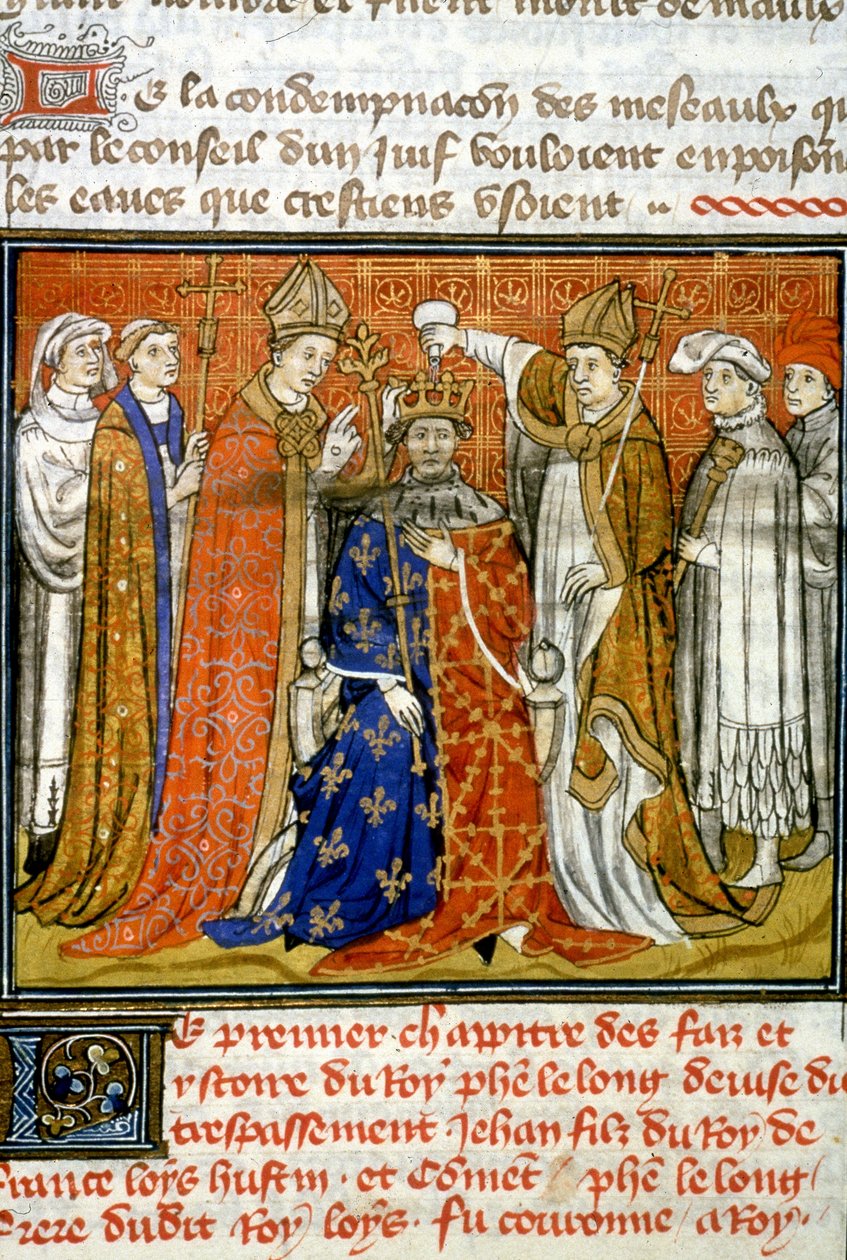 De la condempnacon des meseaulx qu
par le conseil dun Juif vouloient enpoison
les eaues que crestiens vsoient
Le premier chappitre des faiz et
ystoire du Roy phe le long deuise du
trespassement Jehan filz du Roy de
France loys hustin . et Coment phe le long
frere dudit Roy loys . fu couronne a Roy .